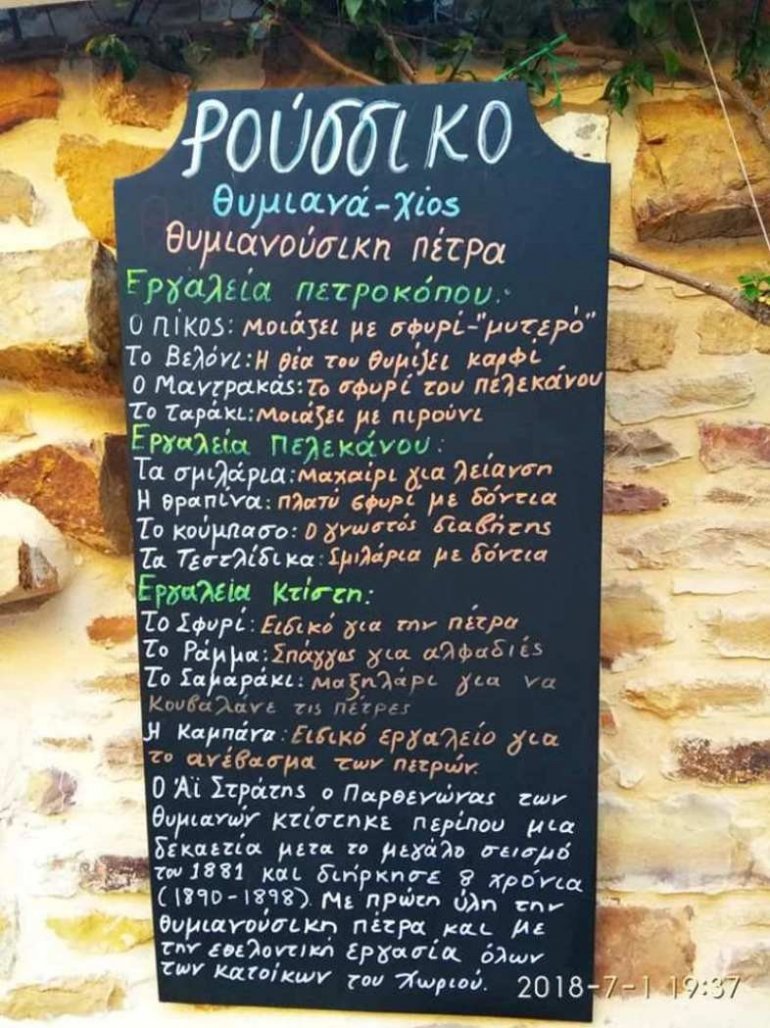 Ρούσσικο
Θυμιανά-Χίος
Θυμιανούσικη πέτρα
Εργαλεία πετροκόπου:
Ο Πίκος: Μοιάζει με σφυρί-"μυτερό"
Το Βελόνι: Η θέα του θυμίζει καρφί
Ο Μαντρακάς: Το σφυρί του πελεκάνου
Το ταράκι: Μοιάζει με πιρούνι
Εργαλεία Πελεκάνου:
Τα σμιλάρια: Μαχαίρι για λείανση
Η θραπίνα: Πλατύ σφυρί με δόντια
Το κούμπασο: Ο γνωστός διαβήτης
Τα Τεστλίδικα: Σμιλάρια με δόντια
Εργαλεία Κτίστη:
Το Σφυρί: Ειδικό για την πέτρα
Το Ράμμα: Σπάγγος για αλφαδιές
Το Σαμαράκι: Μαξηλάρι για να
κουβαλάνε τις πέτρες
Η Καμπάνα: Ειδικό εργαλείο για
το ανέβασμα των πετρών.
Ο Άϊ Στράτης ο Παρθενώνας των
Θυμιανών κτίστηκε περίπου μια
δεκαετία μετα το μεγάλο σεισμό
του 1881 και διήρκησε 8 χρόνια
(1890-1898). Με πρώτη ύλη την
θυμιανούσικη πέτρα και με
την εθελοντική εργασία όλων
των κατοίκων του Χωριού.
2018-7-1 19:37